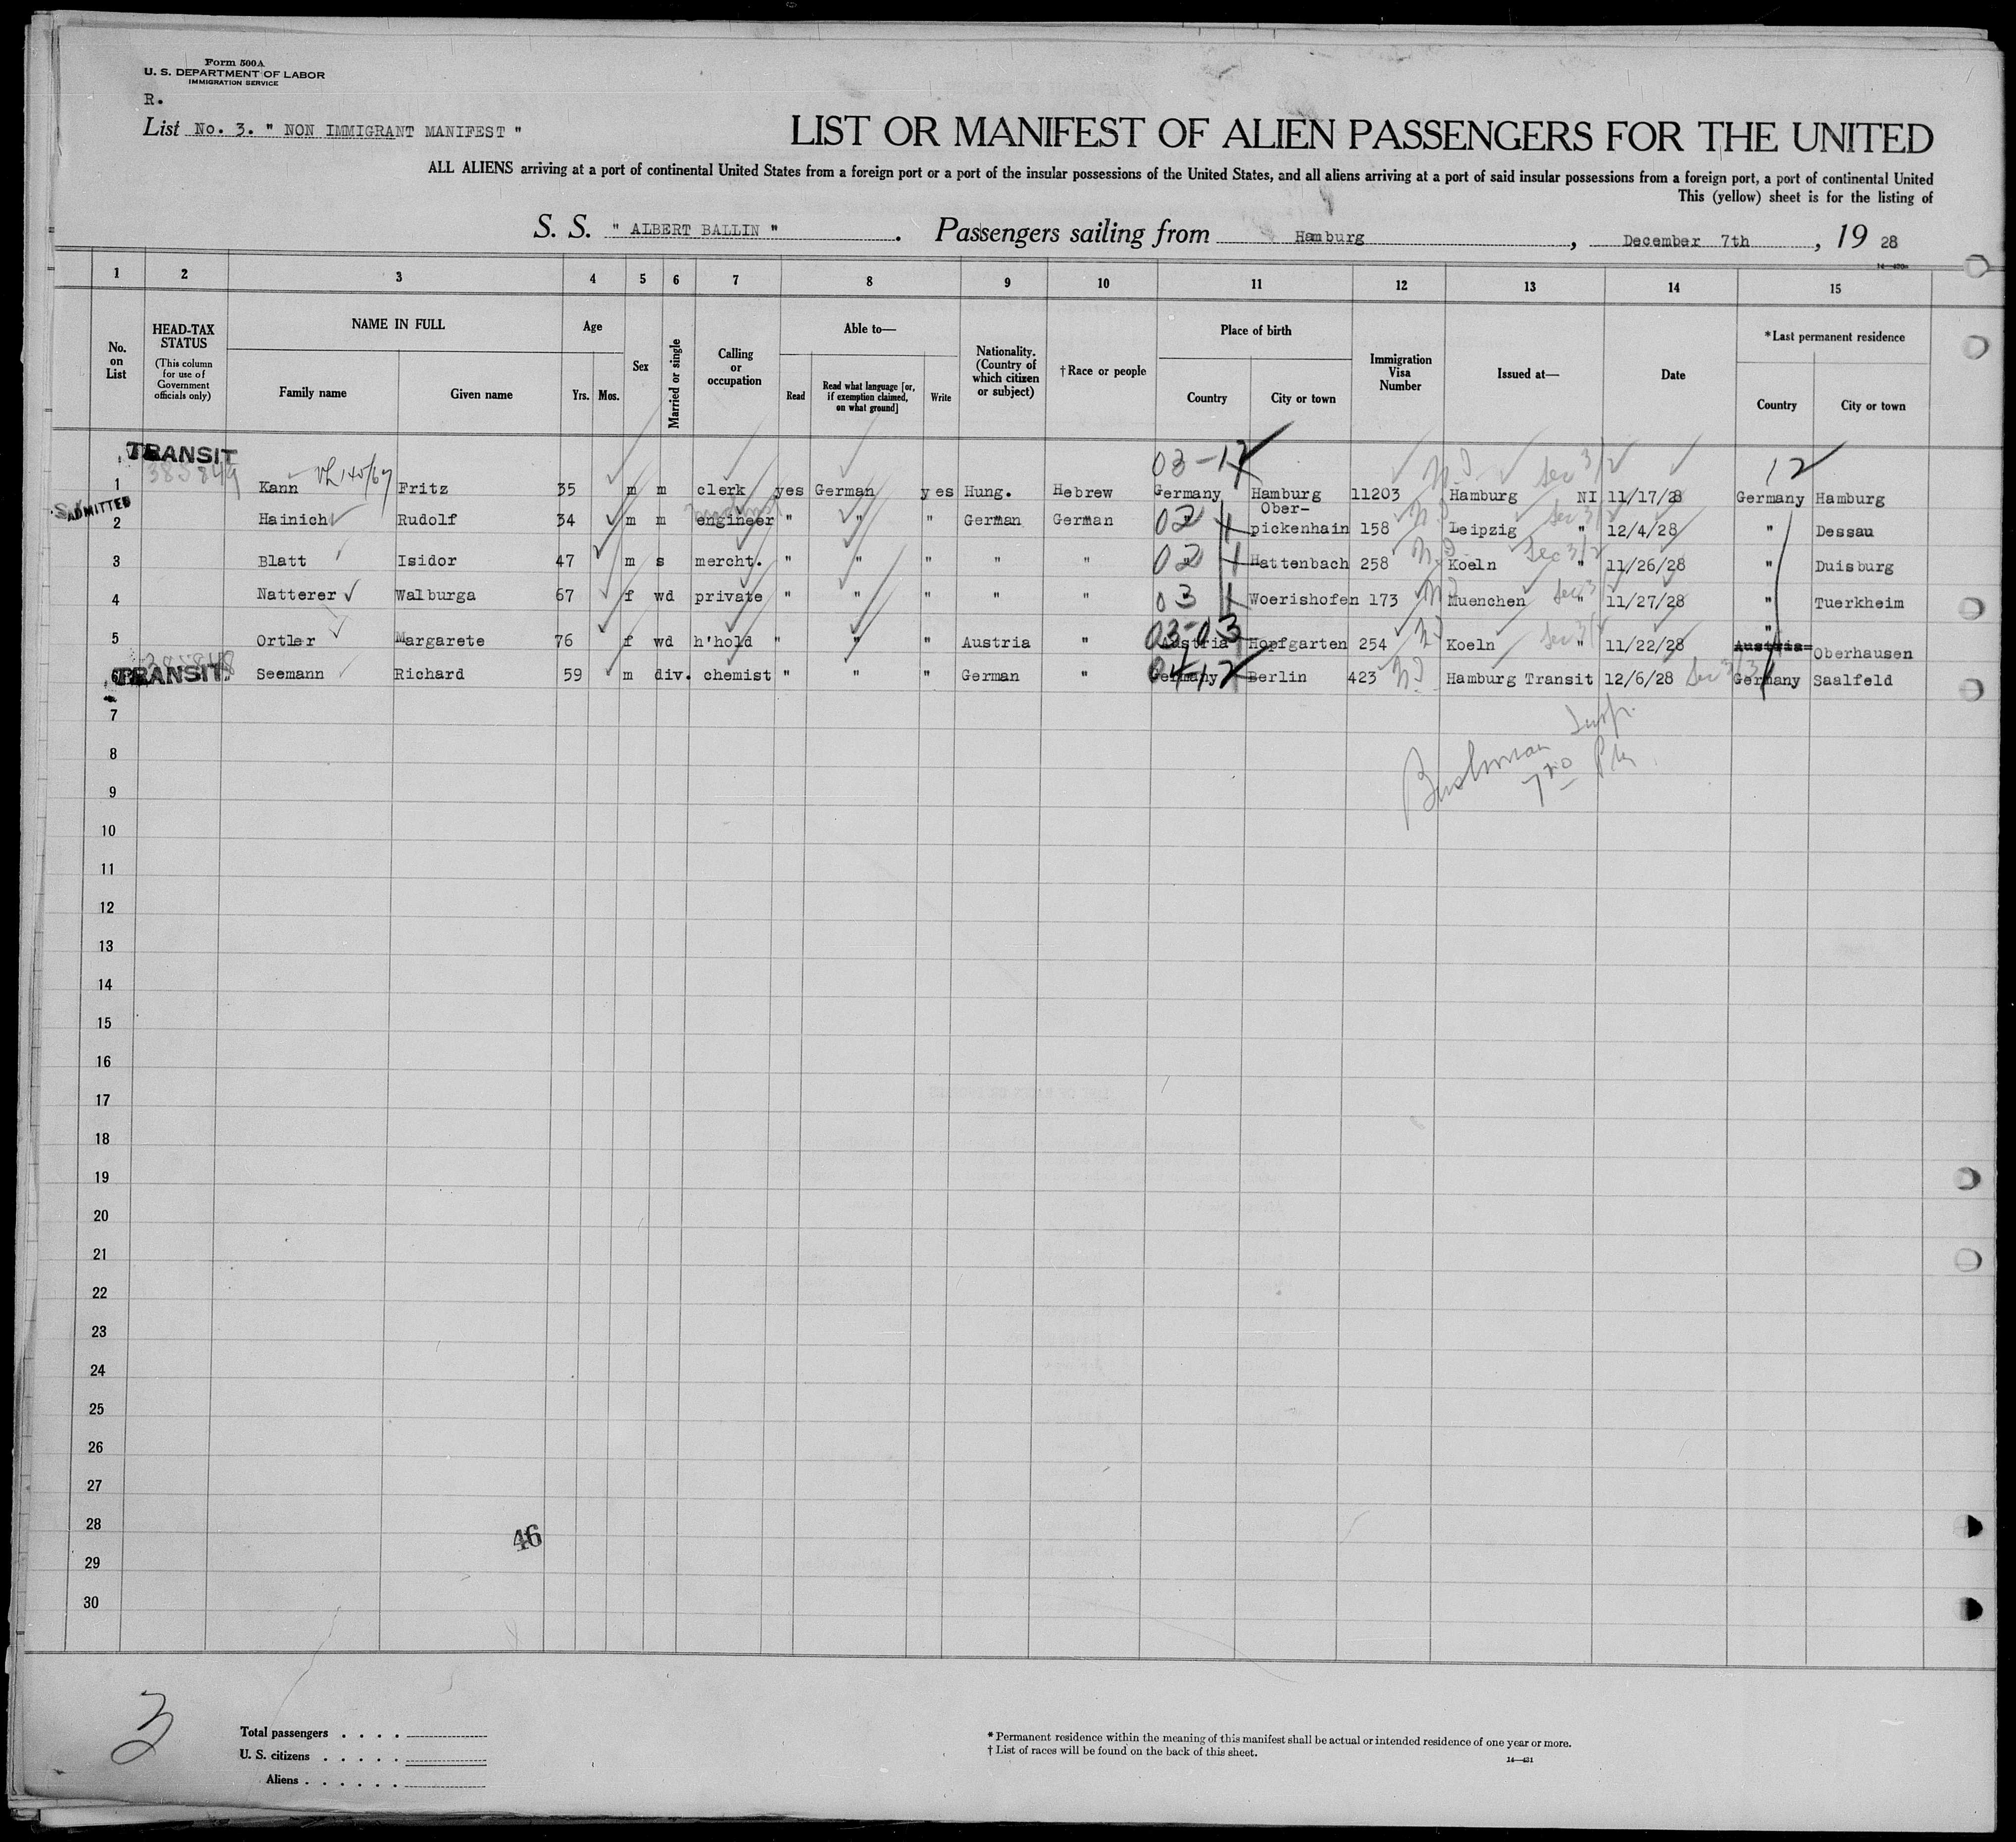 Form 500A
U. S. DEPARTMENT OF LABOR
IMMIGRATION SERVICE
R.
List No. 3. " NON IMMIGRANT MANIFEST "
LIST OR MANIFEST OF ALIEN PASSENGERS FOR THE UNITED
ALL ALIENS arriving at a port of continental United States from a foreign port or a port of the insular possessions of the United States, and all aliens arriving at a port of said insular possessions from a foreign port, a port of continental United
This (yellow) sheet is for the listing of
S. S. " ALBERT BALLIN " . Passengers sailing from Hamburg , December 7th , 19 28
1 2 3 4 5 6 7 8 9 10 11 12 13 14 15
No. on List
HEAD-TAX STATUS
(This column for use of Government officials only)
NAME IN FULL
Family name Given name
Age
Yrs. Mos.
Sex
Married or single
Calling or occupation
Able to—
Read
Read what language [or, if exemption claimed, on what ground]
Write
Nationality. (Country of which citizen or subject)
†Race or people
Place of birth
Country City or town
Immigration Visa Number
Issued at—
Date
*Last permanent residence
Country City or town
TRANSIT
03-12 Sec 3/2 12
1 Kann Fritz 35 m m clerk yes German yes Hung. Hebrew Germany Hamburg 11203 Hamburg NI 11/17/28 Germany Hamburg
ADMITTED
2 Hainich Rudolf 34 m m engineer " " " German German " Ober-pickenhain 158 Leipzig " 12/4/28 " Dessau
3 Blatt Isidor 47 m s mercht. " " " " " 02 Hattenbach 258 Koeln " 11/26/28 " Duisburg
4 Natterer Walburga 67 f wd private " " " " " 03 Woerishofen 173 Muenchen " 11/27/28 " Tuerkheim
5 Ortler Margarete 76 f wd h'hold " " " Austria " Austria Hopfgarten 254 Koeln " 11/22/28 " Austria Oberhausen
TRANSIT
Seemann Richard 59 m div. chemist " " " German " Germany Berlin 423 Hamburg Transit 12/6/28 Germany Saalfeld
7
8
9
10
11
12
13
14
15
16
17
18
19
20
21
22
23
24
25
26
27
28
29
30
46
3
Total passengers . . . .
U. S. citizens . . . . .
Aliens . . . . . .
* Permanent residence within the meaning of this manifest shall be actual or intended residence of one year or more.
† List of races will be found on the back of this sheet.
14—421